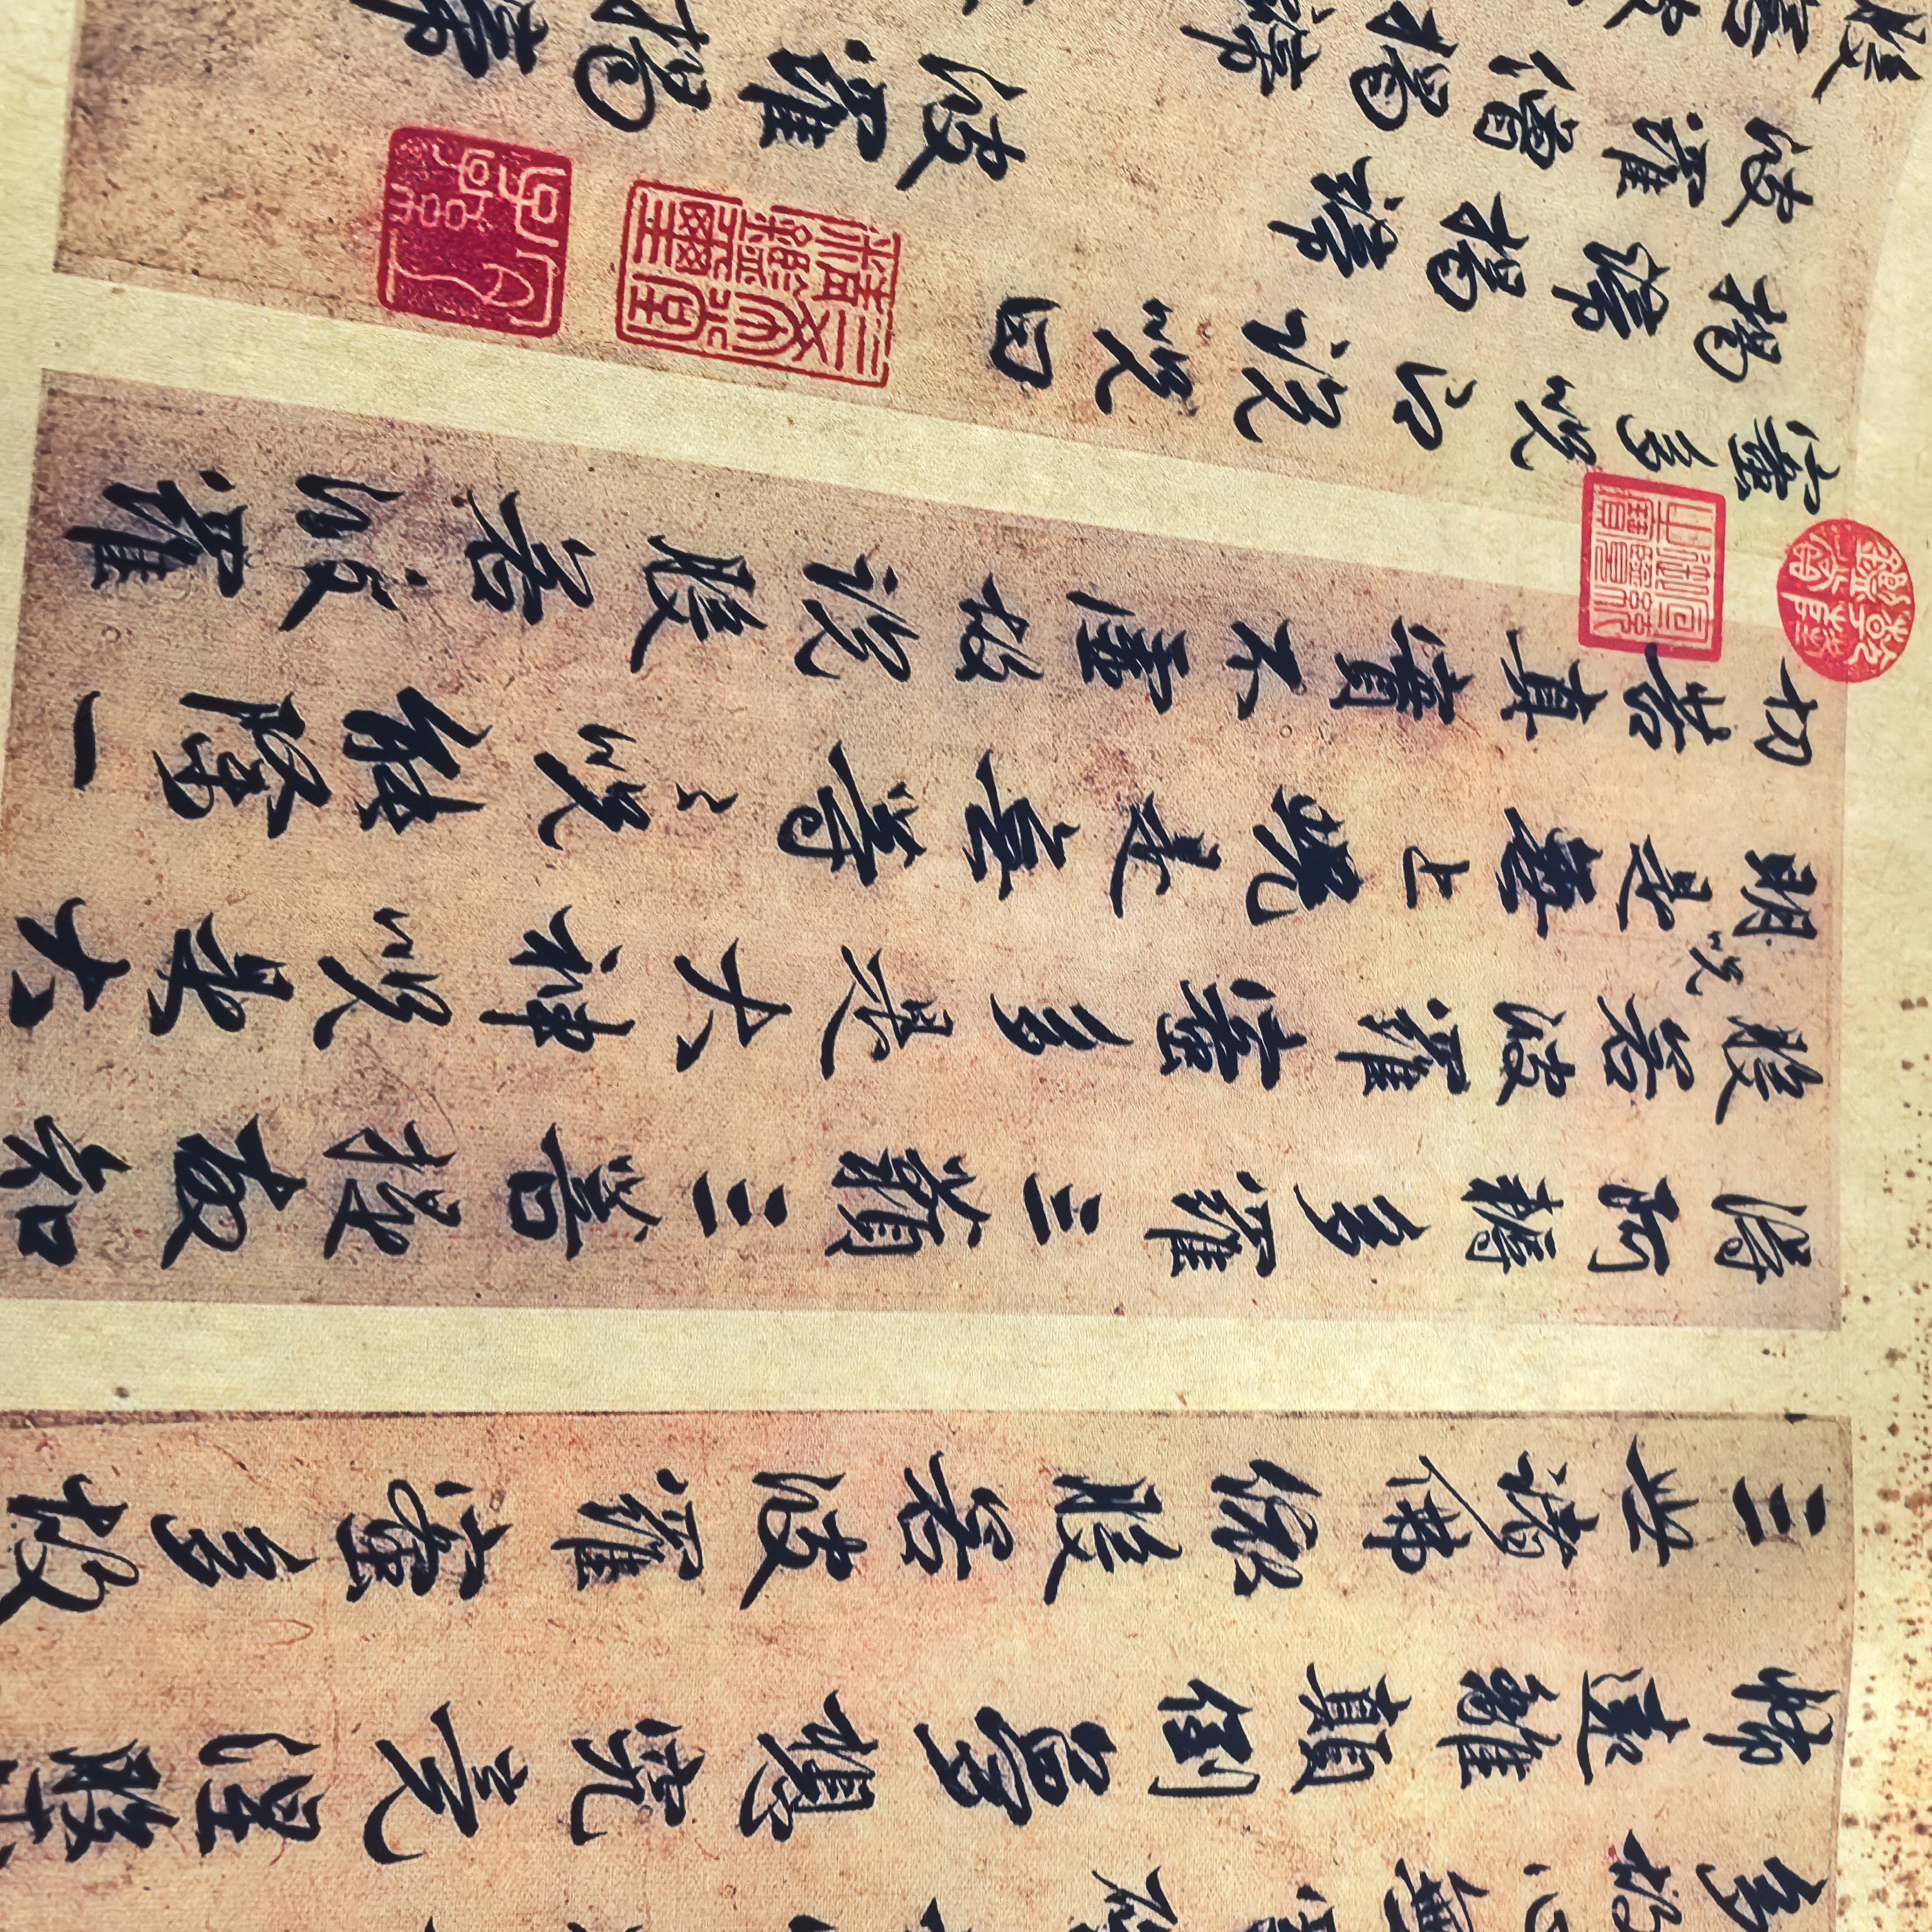 多故心無
怖遠離顛倒夢想究竟涅槃
三世諸佛依般若波羅蜜多故
得阿耨多羅三藐三菩提故知
般若波羅蜜多是大神呪是大
明呪是無上呪是無等等呪能除一
切苦真實不虛故說般若波羅
蜜多呪即說呪曰
揭諦揭諦 波羅揭諦
波羅僧揭諦